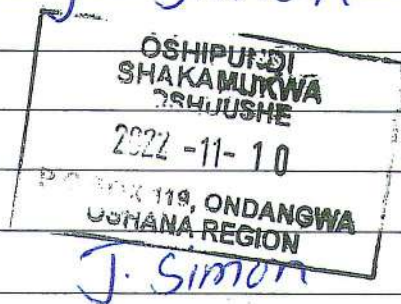 OSHIPUNDI
SHAKAMUKWA
OSHUUSHE
2022 -11- 10
BOX 119, ONDANGWA
OSHANA REGION
J. Simon